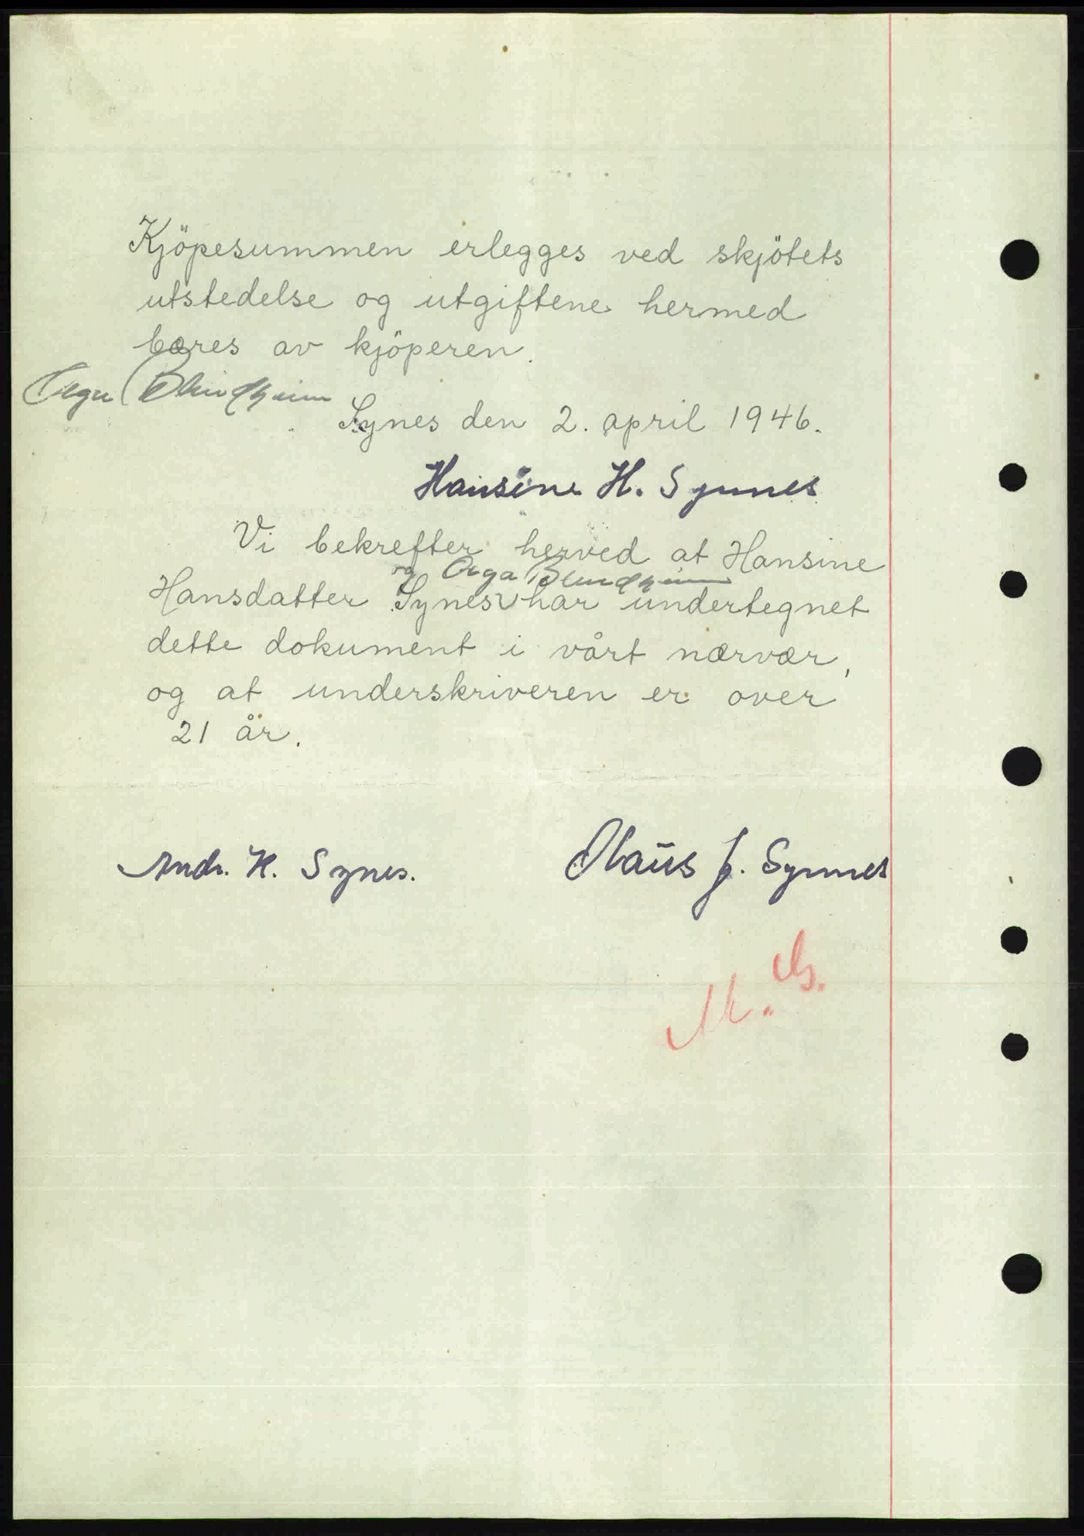 Kjöpesummen erlegges ved skjötets
utstedelse og utgiftene hermed
bæres av kjöperen.
Blindheim
Synes den 2. april 1946.
Hansine H. Synnes
Vi bekrefter herved at Hansine
og Blindheim
Hansdatter Synes har undertegnet
dette dokument i vårt nærvær,
og at underskriveren er over
21 år.
Andr. H. Synes.
Olaus J. Synnes